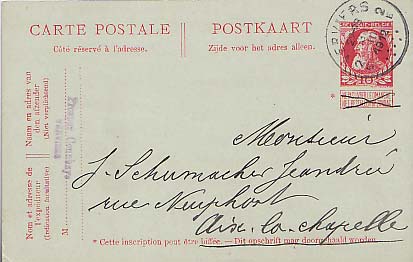 CARTE POSTALE
POSTKAART
Côté réservé à l'adresse.
Zijde voor het adres alleen.
VERVIERS
Naam en adres van
den afzender
(Niet verplichtend)
Nom et adresse de
l'expéditeur
(Indication facultative)
M
10
*
Monsieur
J. Schumacher Jeandré
rue Neuphort
Aix-la-chapelle
* Cette inscription peut être biffée. — Dit opschrift mag doorgehaald worden.